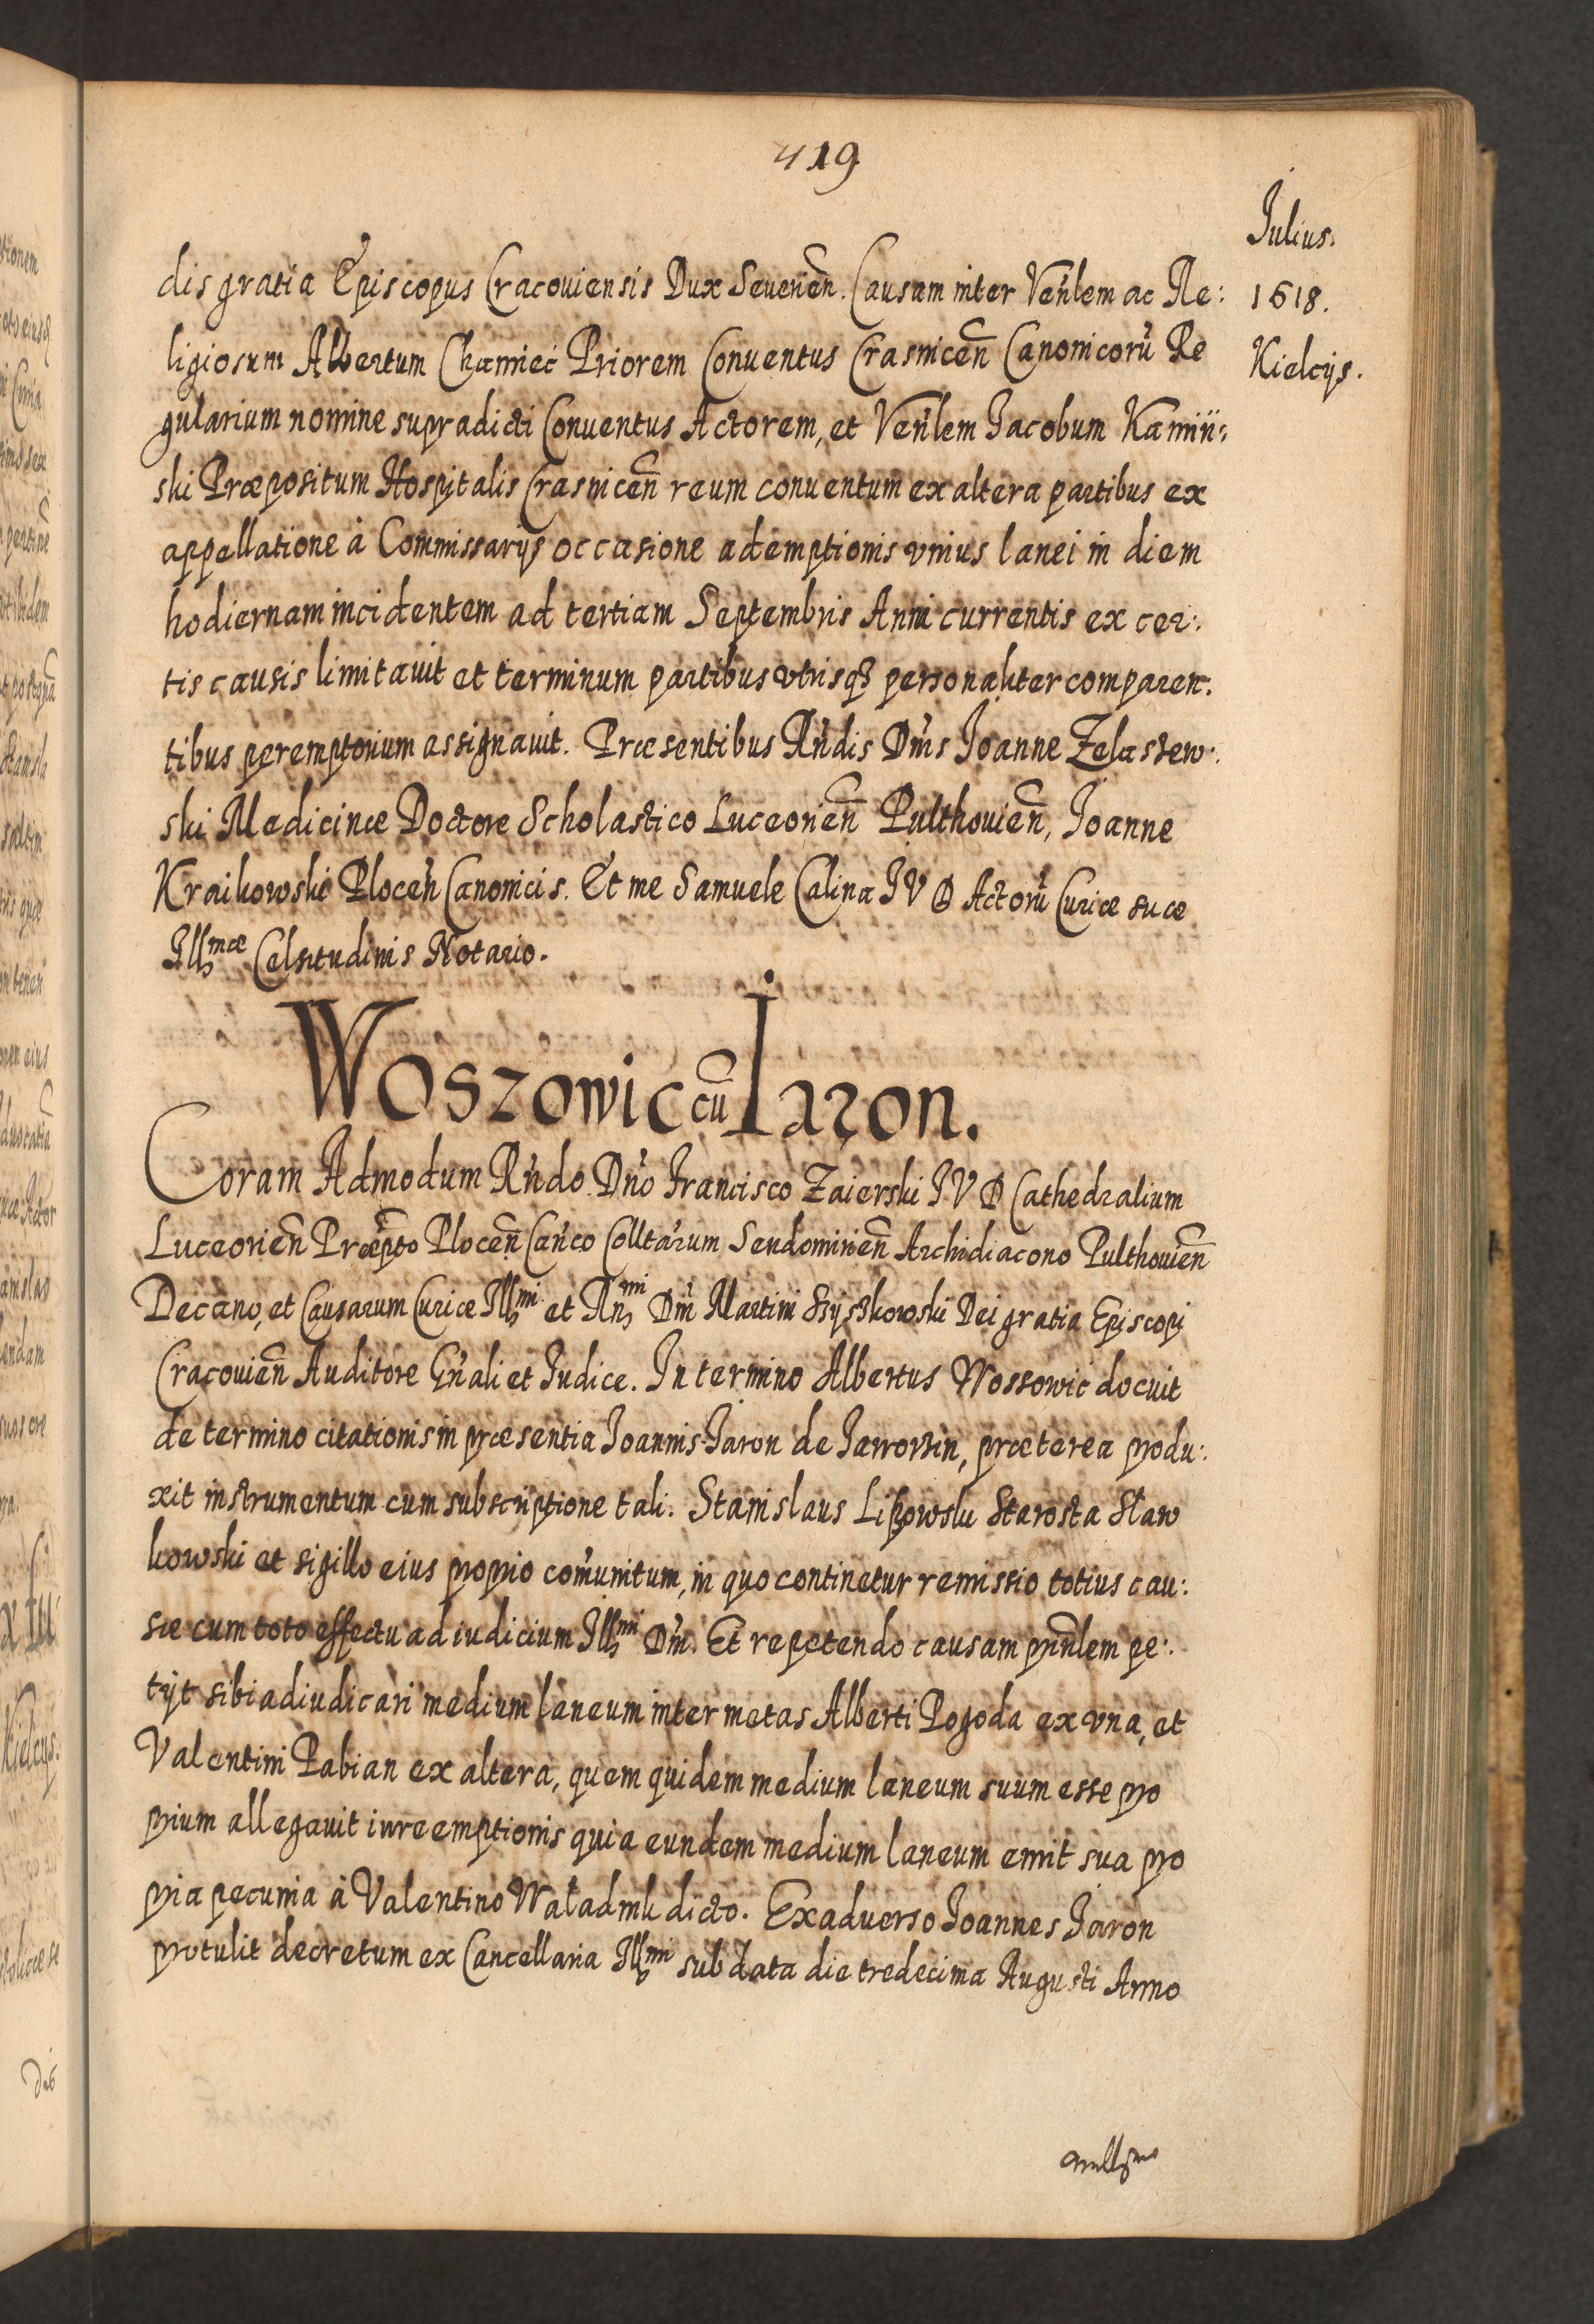 419
Julius.
1618.
Kielcijs.
dis gratia Episcopus Cracouiensis Dux Seuerień. Causam inter Veńlem ac Re:
ligiosum Albertum Chamiec Priorem Conuentus Crasniceń Canonicorũ Re
gularium nomine supradicti Conuentus Actorem, et Veńlem Jacobum Kamiń:
ski Præpositum Hospitalis Crasniceń reum conuentum ex altera partibus ex
appellatione à Commissarijs occasione ademptionis vnius lanei in diem
hodiernam incidentem ad tertiam Septembris Anni currentis ex cer:
tis causis limitauit et terminum partibus vtrisq3 personaliter comparen:
tibus peremptorium assignauit. Præsentibus Rńdis Dńis Joanne Zelassew:
ski Medicinæ Doctore Scholastico Luceorień Pulthouień, Joanne
Kraikowski Ploceń Canonicis. Et me Samuele Calina JVD Actorũ Curiæ suæ
Illmæ Celsitudinis Notario.
Woszowic cũ Jaron.
Coram Admodum Rńdo Dńo Francisco Zaierski JVD Cathedralium
Luceorień Præpto Ploceń Cańco Colltarum Sendomirień Archidiacono Pulthouień
Decano, et Causarum Curiæ Illmi et Rńmi Dńi Martini Szyszkowski Dei gratia Episcopi
Cracouień Auditore Gńali et Judice. In termino Albertus Wossowic docuit
de termino citationis in præsentia Joannis Jaron de præterea produ:
xit instrumentum cum subscriptione tali. Stanislaus Lipowski Starosta Sław
kowski et sigillo eius proprio com̃unitum, in quo continetur remissio totius cau:
sæ cum toto effectu ad iudicium Illmi Dńi. Et repetendo causam pńńlem pe:
tijt sibi adiudicari medium laneum inter metas Alberti Pogoda ex vna, et
Valentini Pabian ex altera, quem quidem medium laneum suum esse pro
prium allegauit iure emptionis quia eundem medium laneum emit sua pro
pria pecunia à Valentino dicto. Ex aduerso Joannes Jaron
protulit decretum ex Cancellaria Illmi sub data die tredecima Augusti Anno